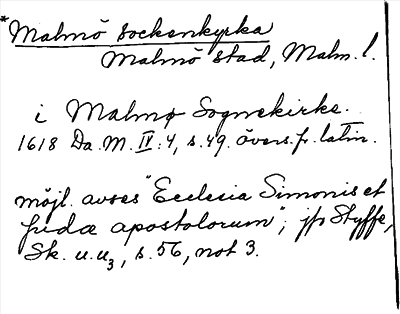 *Malmö sockenkyrka
Malmö stad, Malm. l.
i Malmø Sognekirke.
1618 Da. M. IV:4, s. 49. övers. fr. latin.
möjl. avses "Ecclesia Simonis et
Judæ apostolorum"; jfr Styffe,
Sk. u. u3, s. 56, not 3.